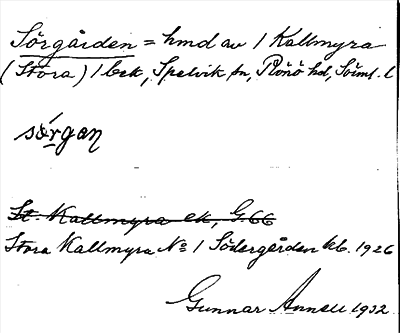 Sörgården = hmd av 1 Kallmyra
(Stora) 1 bek, Spelvik sn, Rönö hd, Söiml. l
sö́rgaɳ
St. Kallmyra ek, G 66
Stora Kallmyra No 1 Södergården kb. 1926
Gunnar Annell 1932